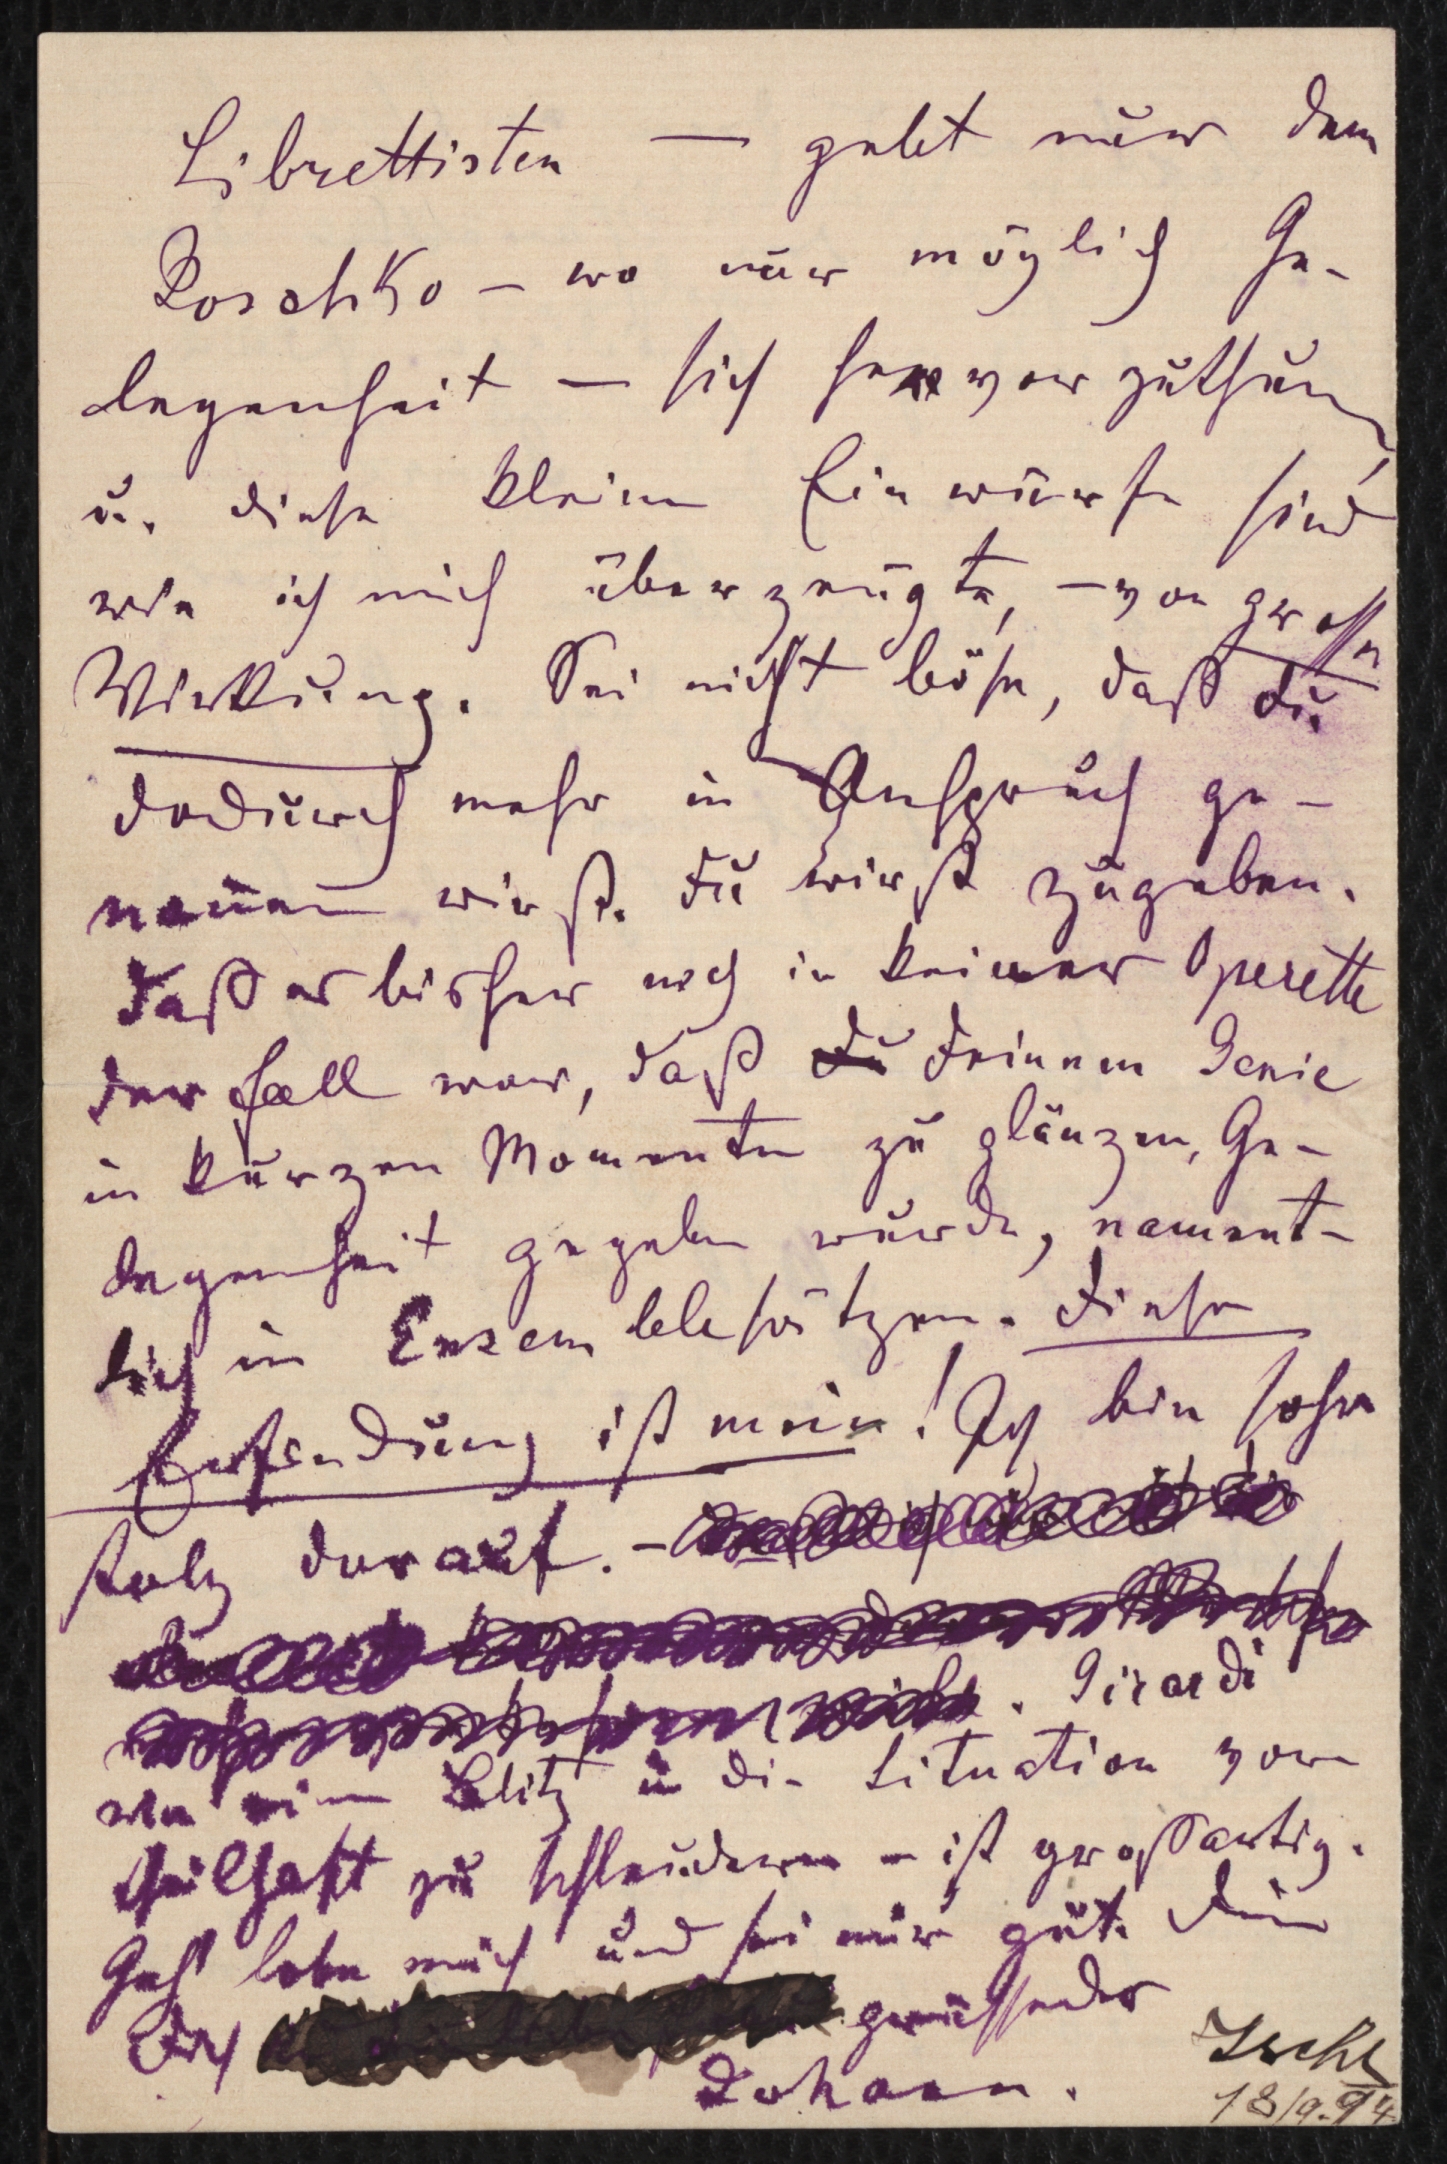 Librettisten — gebt nur dem
Joschko – wo nur möglich Ge-
legenheit – sich hervorzuthun,
u. diese kleinen Einwürfe sind
wie ich mich überzeugte, – von großer
Wirkung. Sei nicht böse, daß du
dadurch mehr in Anspruch ge-
nommen wirst. Du wirst zugeben.
daß es bisher noch in keiner Operette
der Fall war, daß Deinem Genie
in kurzen Momenten zu glänzen, Ge-
legenheit gegeben wurde, nament-
lich in Ensemblesätzen. Diese
Erfindung ist mein! Ich bin sehr
stolz darauf. –
Girardi
wie einen Blitz in die Situation vor-
theilhaft zu schleudern – ist großartig.
Geh' lobe mich und sei mir gut. Dein
Dich grüssender
Johann.
Ischl
18/9. 94